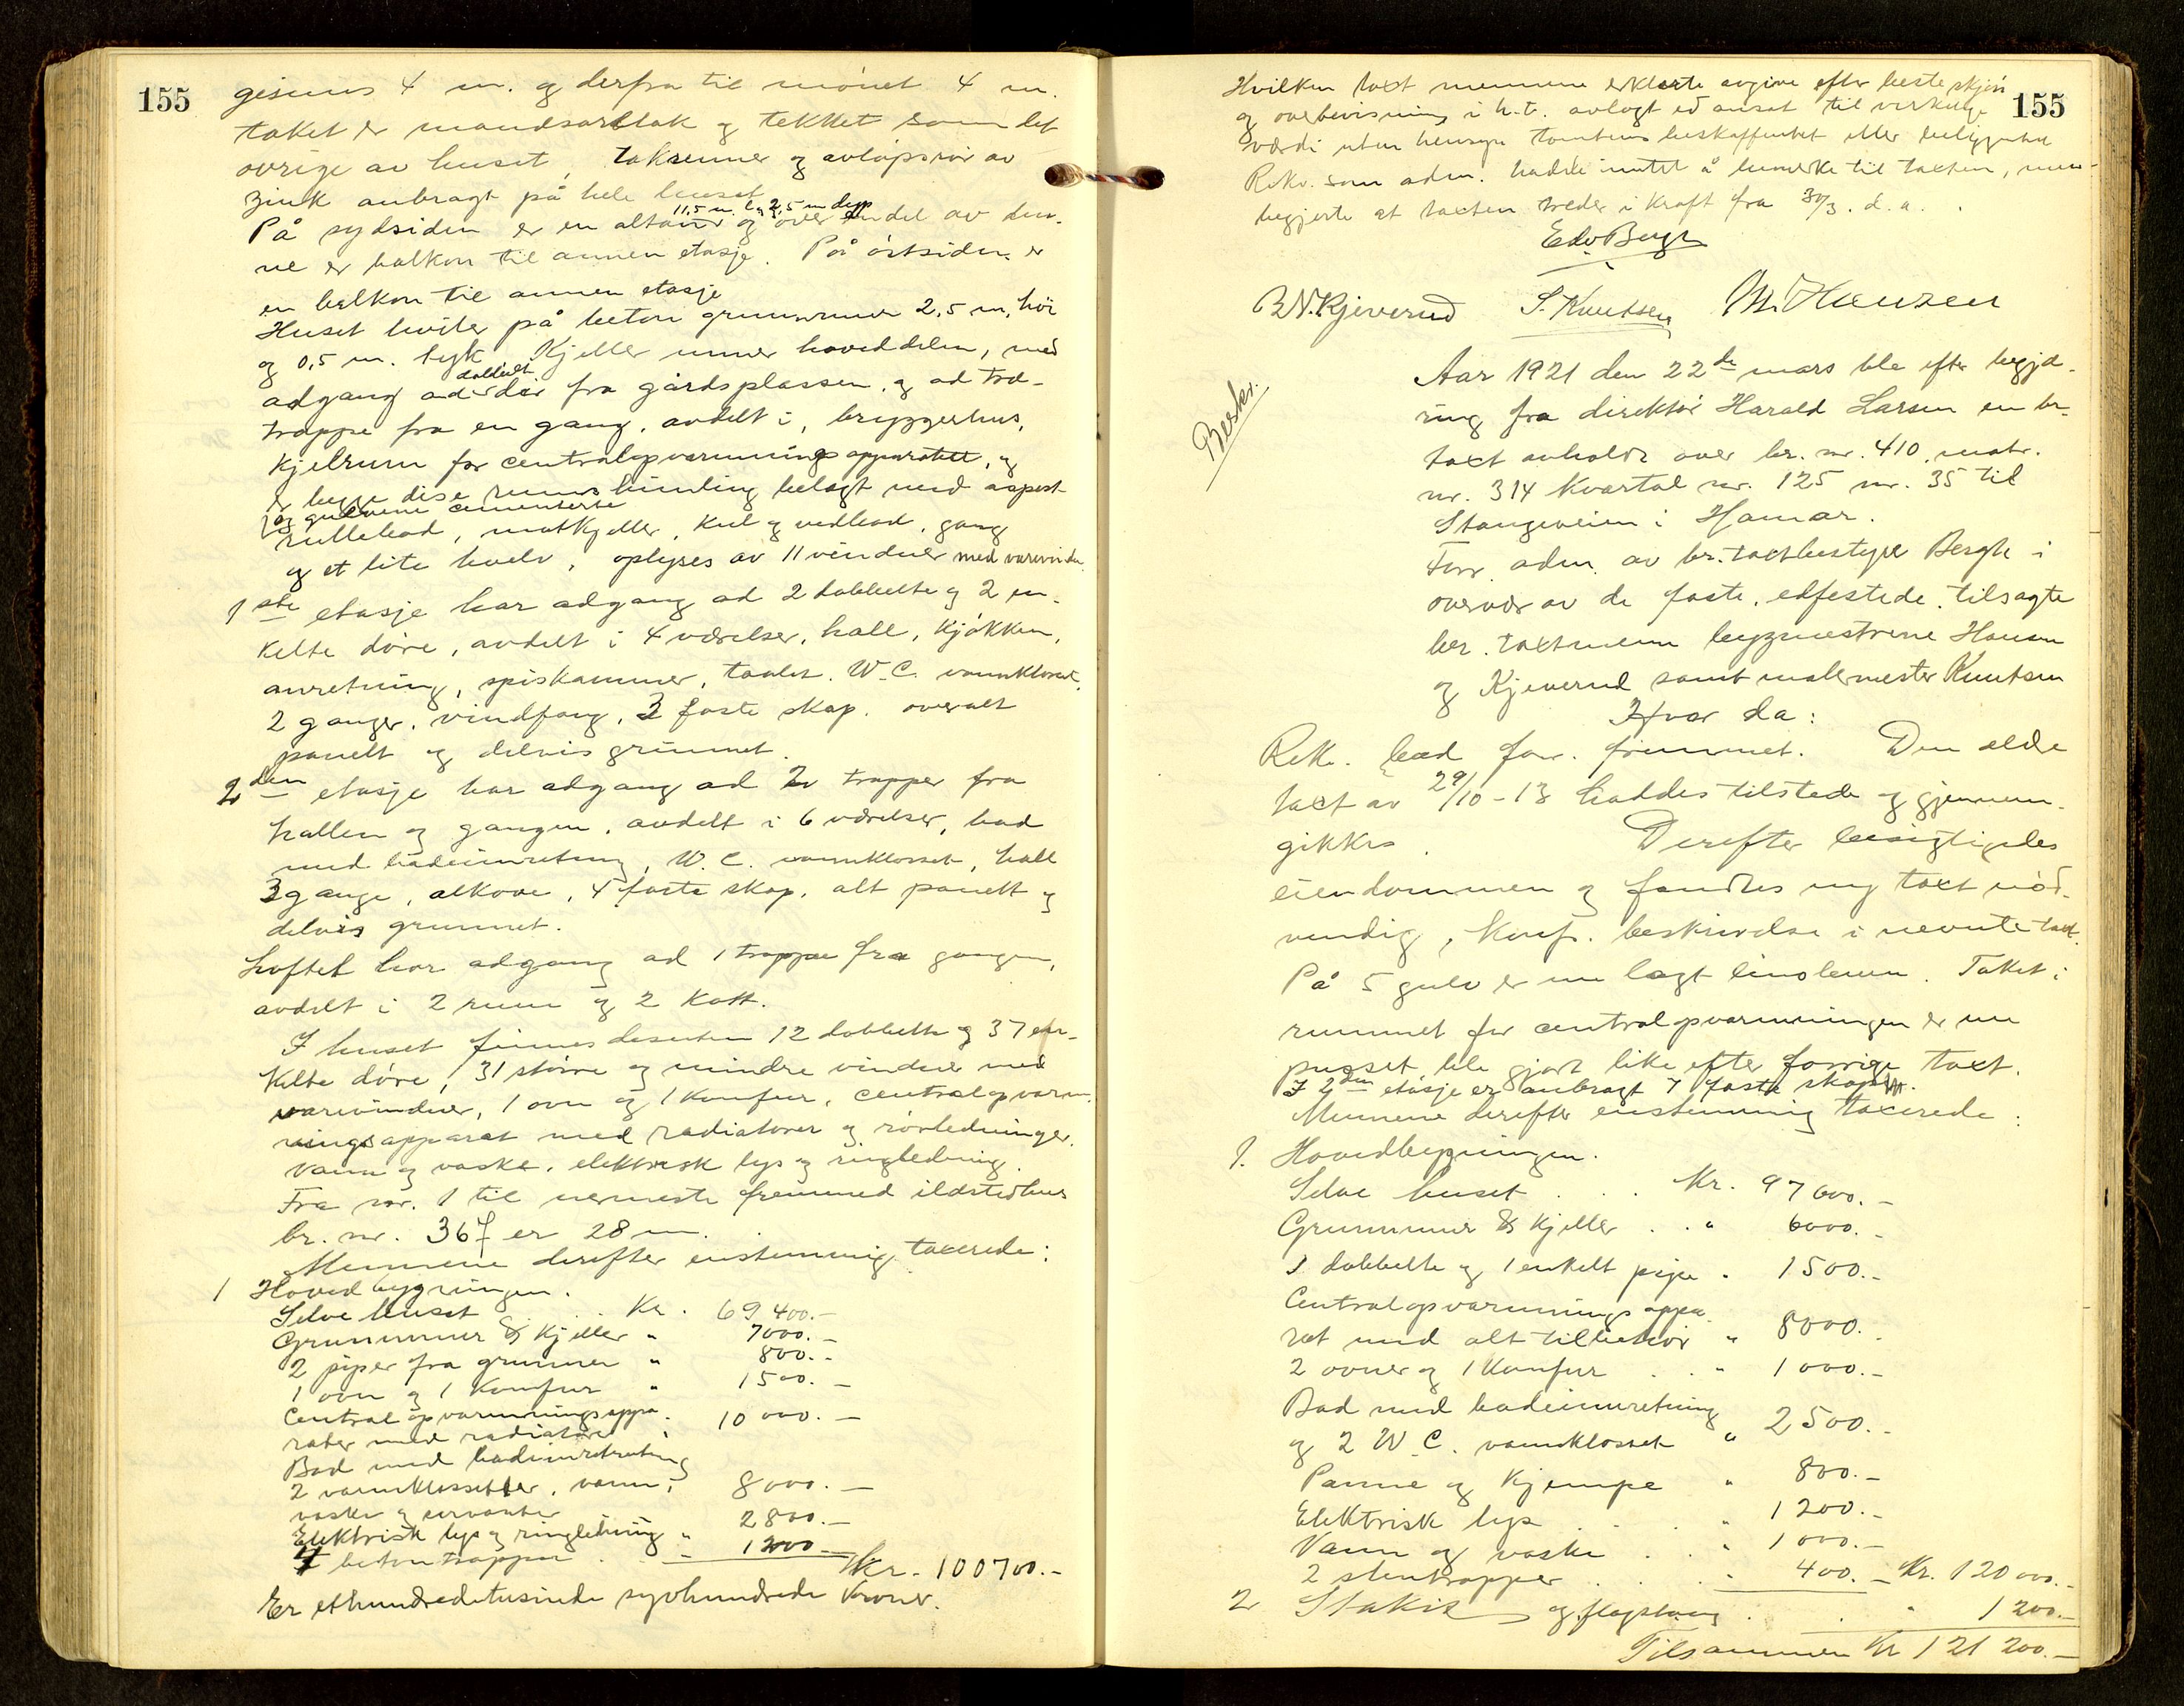 155
gesims 4 m. og derfra til mønet 4 m.
taket er mandsardtak og tekket som det
øvrige av huset, takrenner og avløpsrør av
zink anbragt på hele huset
11,5 m. l. 2,5 m dyp
På sydsiden er en altan og over en del av den-
ne er balkon til annen etasje. På østsiden er
en balkon til annen etasje
Huset hviler på beton grunnmur 2,5 m. høi
og 0,5 m. tyk. Kjeller unner hoveddelen, med
dobbelt
adgang ad dør fra gårdsplassen, og ad træ-
trappe fra en gang, avdelt i, bryggerhus,
kjelrum for centralopvarmningsapparatet, og
er begge disse rums himling belagt med aspest
og gulvene cementerte
rullebod, matkjeller, kul og vedbod, gang
og et lite hvelv, oplyses av 11 vinduer med varevinduer
1ste etasje har adgang ad 2 dobbelte og 2 en-
kelte døre, avdelt i 4 værelser, hall, kjøkken,
anretning, spiskammer, toalet. W.C. vannkloset,
2 ganger, vindfang, 3 faste skap. overalt
panelt og delvis grunnet.
2den etasje har adgang ad 2 trapper fra
hallen og gangen, avdelt i 6 værelser, bad
med badeinnretning, W.C. vannklosset, hall
3 gange, alkove, 4 faste skap. alt panelt og
delvis grunnet.
Loftet har adgang ad 1 trappe fra gangen,
avdelt i 2 rum og 2 kott.
I huset finnes desuten 12 dobbelte og 37 en-
kelte døre, 31 større og mindre vinduer med
varevinduer, 1 ovn og 1 komfur, centralopvarm-
ningsapparat med radiatorer og rørledninger.
Vann og vaske, elektrisk lys og ringledning.
Fra nr. 1 til nermeste fremmed ildstedhus
br. nr. 367 er 28 m.
Mennene derefter enstemmig taxerede:
1 Hovedbygningen.
Selve huset . . Kr. 69400.-
Grunnmur & Kjeller " 7000.-
2 piper fra grunnen " 800.-
1 ovn og 1 Komfur " 1500.-
Centralopvarmningsappa-
rater med radiatorer " 10000.-
Bad med badeinnretning
2 vannklossetter, vann,
vaske og servanter 8000.-
Elektrisk lys og ringledning " 2800.-
4 betontrapper . " 1200 Kr. 100700.-
Er ethundredetusinde syvhundrede Kroner.
155
Hvilken taxt mennene erklærte avgive efter beste skjøn
og overbevisning i h.t. avlagt ed ansat til virkelige
værdi uten hensyn tomtens beskaffenhet eller beliggenhet
Rekv. som adm. hadde intet å bemerke til taxten, men
begjerte at taxten træder i kraft fra 30/3. d.a.
Edv Bergh
B.N. Kjeverud S. Knutsen M. Hansen
Beskr.
Aar 1921 den 22de mars ble efter begjæ-
ring fra direktør Harald Larsen en br.
taxt avholdt over br. nr. 410, matr.
nr. 314 Kvartal nr. 125 nr. 35 til
Stangeveien i Hamar.
Forr. adm. av br.taxtbestyrer Bergh i
overvær av de faste, edfestede, tilsagte
br. taxtmenn byggmestrene Hansen
og Kjeverud samt malermester Knutsen
Hvor da:
Rek. lod forr. fremmet. Den eldre
taxt av 29/10-13 haddes tilstede og gjennem-
gikkes. Derefter besigtigedes
eiendommen og fandtes ny taxt nød-
vendig, konf. beskrivelse i nevnte taxt.
På 5 gulv er nu lagt linoleum. Taket i
rummet for centralopvarmningen er nu
pusset, ble gjort like efter forrige taxt.
I 2den etasje er anbragt 7 faste skaper.
Mennene derefter enstemmig taxerede:
1. Hovedbygningen.
Selve huset . . . Kr. 97600.-
Grunnmur & kjeller . . " 6000.-
1 dobbelte og 1 enkelt pipe " 1500.-
Centralopvarmnings appa
rat med alt tilbehør " 8000.-
2 ovner og 1 Komfur . . " 1000.-
Bad med badeinnretning
og 2 W.C. vannklosset " 2500.-
Panne og Kjempe " 800.-
Elektrisk lys . . . " 1200.-
Vann og vaske . . " 1000.-
2 stentrapper . . . " 400.- Kr. 120000.-
2 Stakit og flagstang . . " 1200.-
Tilsammen Kr 121200.-